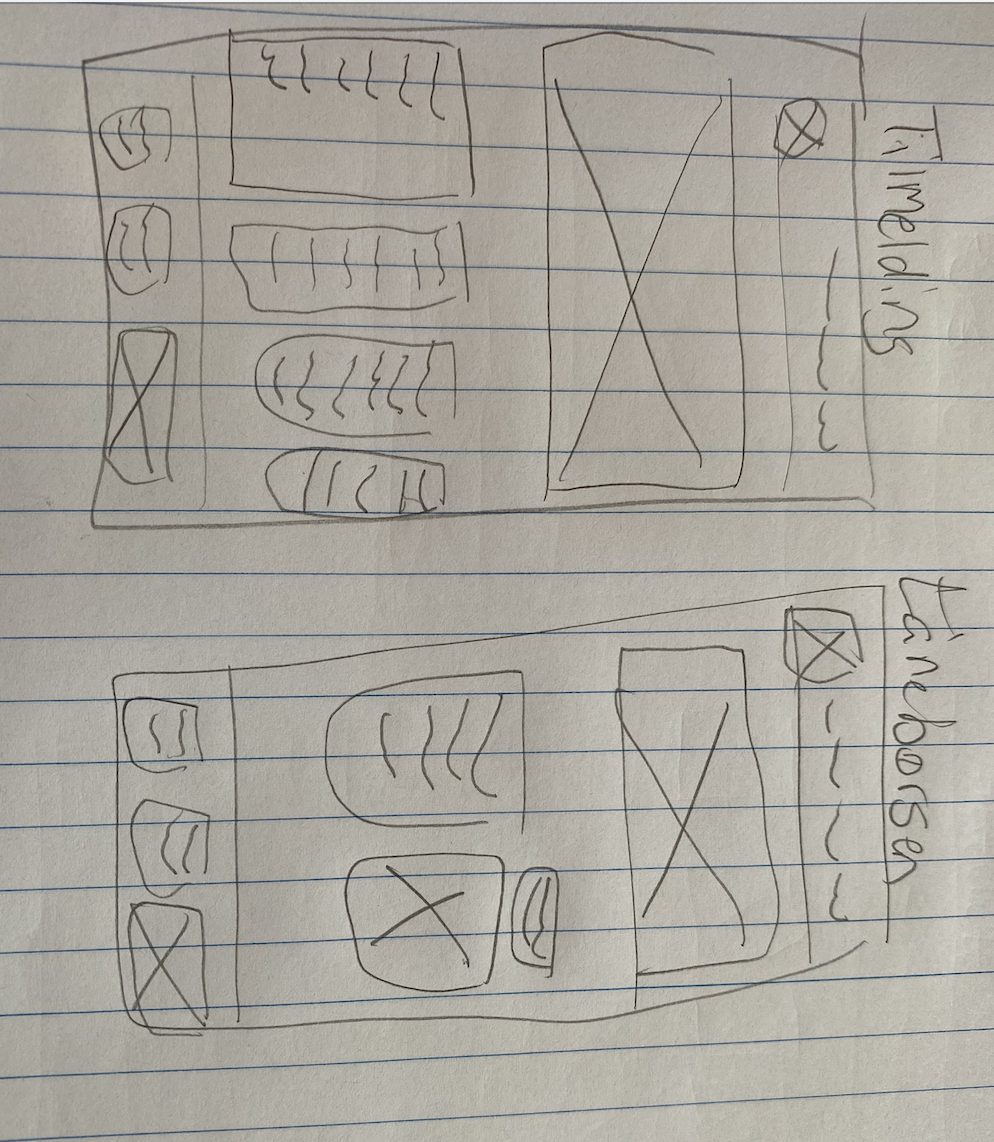 Tilmelding
Lånebørsen